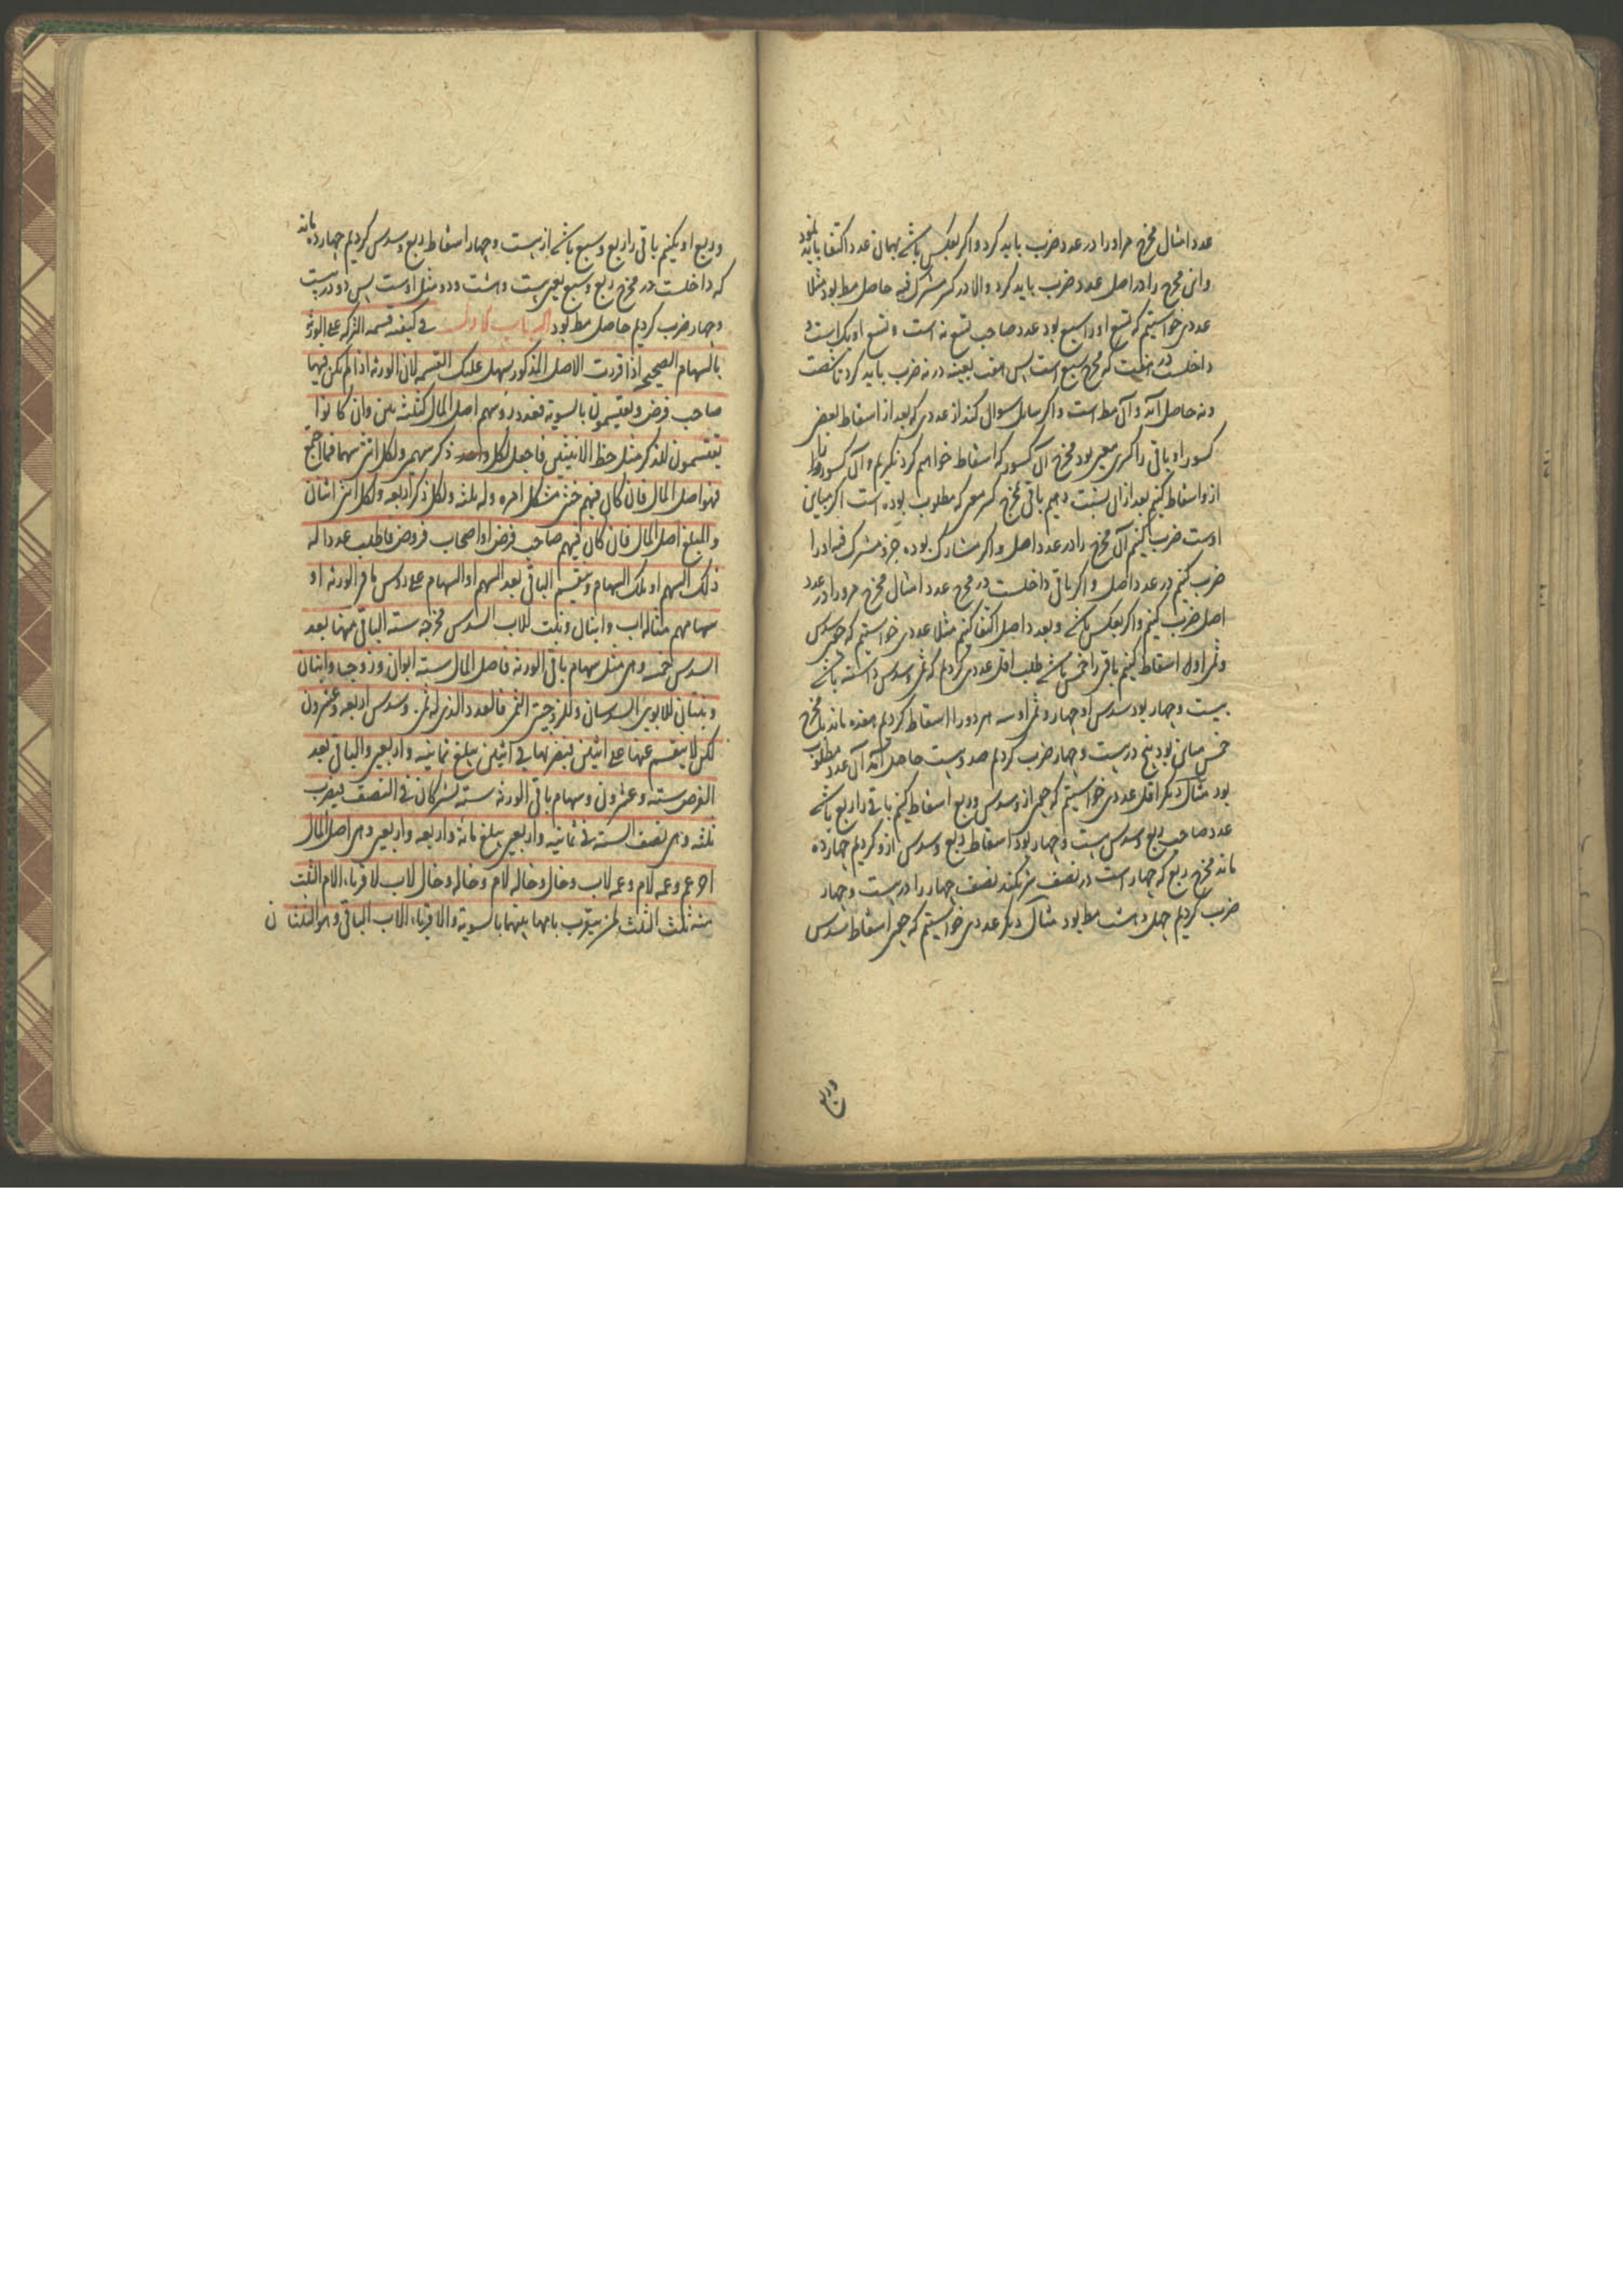 عدد امثال مخرج مر او را در عدد ضرب باید کرد و اکر بعکس باشد بهمان عدد اکتفا باید نمود
و ان مخرج را در اصل عدد ضرب باید کرد والا در کسر مشترک فیه حاصل مط بود مثلا
عددی خواستیم که تسع او را سبع بود عدد صاحب تسع نه است و تسع او یک است و
داخلست در هفت که مخرج سبع است پس هفت بعینه در نه ضرب باید کرد تا شصت
وسه حاصل آید و آن مط است و اکر سایل سوال کند از عددی که بعد از اسقاط بعض
کسور او باقی را کسری معین بود مخرج آن کسور که اسقاط خواهیم کرد بکیریم و آن کسور را
ازو اسقاط کنیم بعد از ان نسبت دهیم باقی بمخرج کسر معین که مطلوب بوده است اکر مباین
اوست ضرب کنیم آن مخرج را در عدد اصل و اکر مشارک بوده جزء مشترک فیه او را
ضرب کنیم در عدد اصل و اکر باقی داخلست در مخرج عدد امثال مخرج مر او را در عدد
اصل ضرب کنیم و اکر بعکس باشد و بعدد اصل اکتفا کنیم مثلا عددی خواستیم که چون سدس
و ثمن او را اسقاط کنیم باقی را خمس باشد طلب اقل عددی کردیم که ثمن و سدس داشته باشد
بیست و چهار بود سدس او چهار و ثمن او سه هر دو را اسقاط کردیم هفده ماند با مخرج
خمس مباین بود پنج در بیست و چهار ضرب کردیم صد و بیست حاصل آمد آن عدد مطلوب
بود مثال دیکر اقل عددی خواستیم که چون ازو سدس و ربع اسقاط کنیم باقی را ربع باشد
عدد صاحب ربع و سدس بیست و چهار بود اسقاط ربع و سدس ازو کردیم چهارده
ماند مخرج ربع که چهار است در نصف شریکند نصف چهار را در بیست و چهار
ضرب کردیم چهل و هشت مط بود مثال دیکر عددی خواستیم که چون اسقاط سدس
و ربع
و ربع او بکنیم باقی را ربع و سبع باشد از بیست و چهار اسقاط ربع و سدس کردیم چهارده ماند
که داخلست در مخرج ربع و سبع یعنی بیست و هشت و دو مثل اوست پس دو در بیست
و چهار ضرب کردیم حاصل مط بود الباب فی کیفیة قسمة الترکه علی الورثة
بالسهام الصحیحه اذا قررت الاصل المذکور سهل علیک القسمه لان الورثه اذا لم یکن فیها
صاحب فرض ویقتسمون بالسویه فعدد رؤسهم اصل المال کثلثة بنین وان کانوا
یقتسمون للذکر مثل حظ الانثیین فاجعل لکل واحد ذکر سهمین ولکل انثی سهما فما اجتمع
فهو اصل المال فان کان فیهم خنثی مشکل امره وله ثلثه ولکل ذکر اربعه ولکل انثی اثنان
والمبلغ اصل المال فان کان فیهم صاحب فرض او اصحاب فروض فاطلب عددا له
ذلک السهم او تلک السهام وینقسم الباقی بعد السهم او السهام علی رؤس باقی الورثه او
سهامهم مثاله اب وابنان وبنت للاب السدس مخرجه ستة الباقی منها بعد
السدس خمسه وهی مثل سهام باقی الورثه فاصل المال ستة ابوان وزوجه وابنان
وبنتان للابوین السدسان وللزوجة الثمن فالعدد الذی له ثمن وسدس اربعه وعشرون
لکن لا ینقسم عنها علی اثنین فنضربها فی اثنین یبلغ ثمانیة واربعین والباقی بعد
الفرض ستة وعشرون وسهام باقی الورثه ستة یشترکان فی النصف فیضرب
ثلثه وهی نصف الستة فی ثمانیة واربعین یبلغ مائة واربعه واربعین وهی اصل المال
اخر عم وعمه لام وعمه لاب وخال وخاله لام وخاله وخال لاب لاقرباء الام الثلث
منه ثلث الثلث لمن یتقرب بامها بینهما بالسویة ولاقرباء الاب الباقی وهو الثلثان